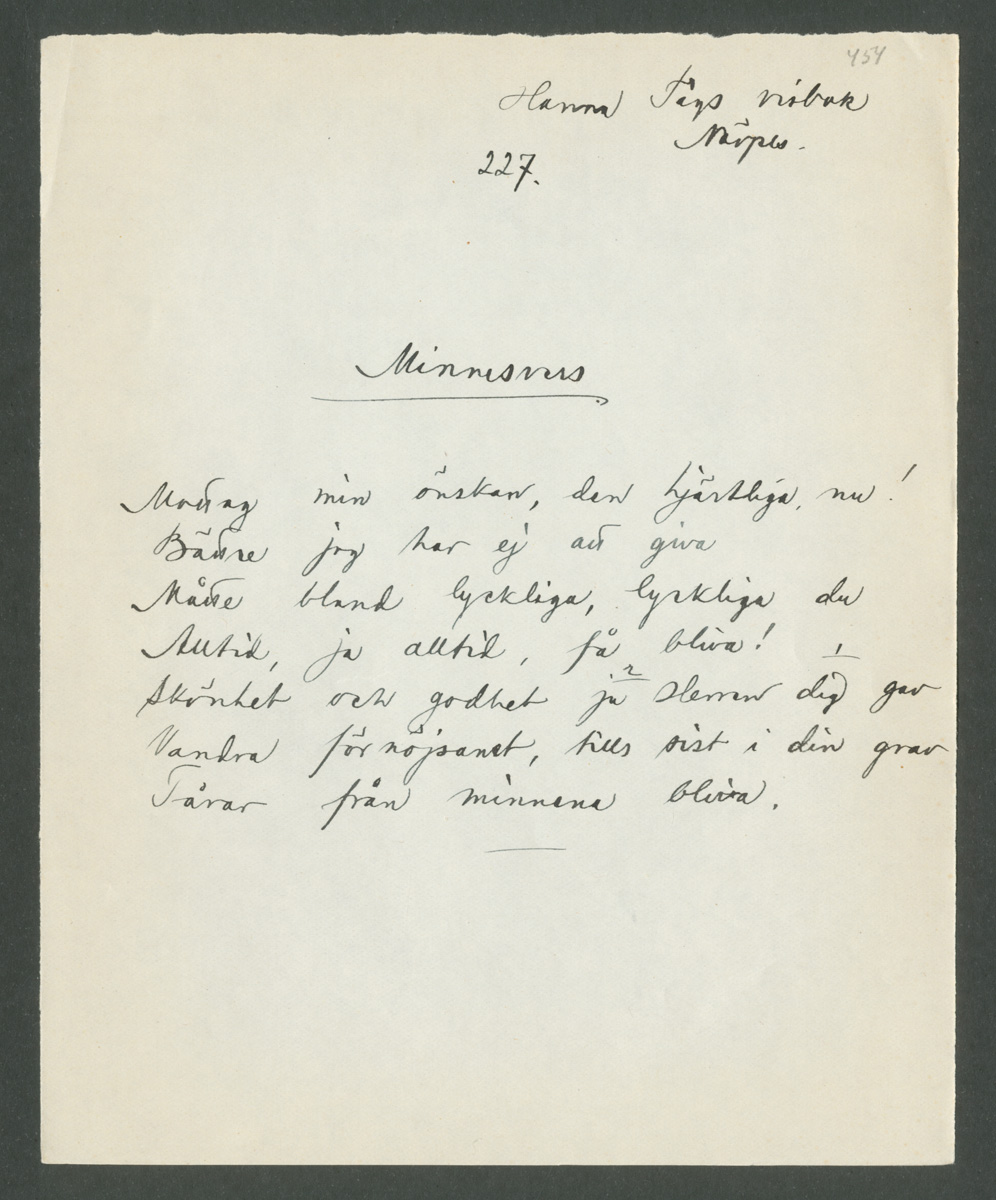 454
Hanna Tågs visbok
Närpes.
227.
Minnesvers
Mottag min önskan, den hjärtliga, nu!
Bättre jag har ej att giva
Måtte bland lyckliga, lyckliga du
Alltid, ja alltid, få bliva!
Skönhet och godhet ju 2 Herren dig 1 gav
Vandra förnöjsamt, tills sist i din grav
Tårar från minnena bliva.